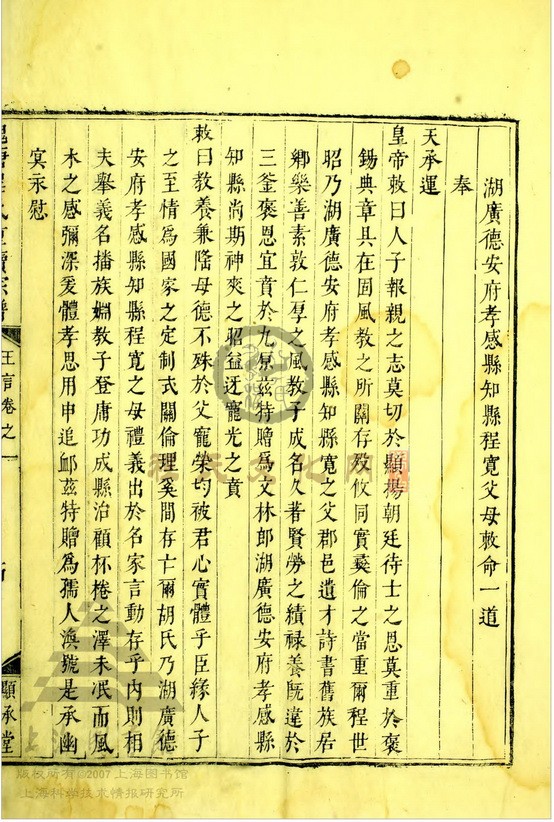 湖廣德安府孝感縣知縣程寬父母敕命一道
奉
天承運
皇帝敕曰人子報親之志莫切於顯揚朝廷待士之恩莫重於褒
錫典章具在固風教之所關存歿攸同實彞倫之當重爾程世
昭乃湖廣德安府孝感縣知縣寬之父郡邑遺才詩書舊族居
鄉樂善素敦仁厚之風教子成名久著賢勞之績祿養旣違於
三釜褒恩宜賁於九原茲特贈為文林郎湖廣德安府孝感縣
知縣尚期神爽之昭益迓寵光之賁
敕曰教養兼隆母德不殊於父寵榮均被君心實體乎臣緣人子
之至情為國家之定制式關倫理奚間存亡爾胡氏乃湖廣德
安府孝感縣知縣程寬之母禮義出於名家言動存乎內則相
夫舉義名播族婣教子登庸功成縣治顧杯棬之澤未泯而風
木之感彌深爰體孝思用申追卹茲特贈為孺人渙號是承幽
冥永慰
王言卷之一
顯承堂
版权所有©2007上海图书馆
上海科学技术情报研究所